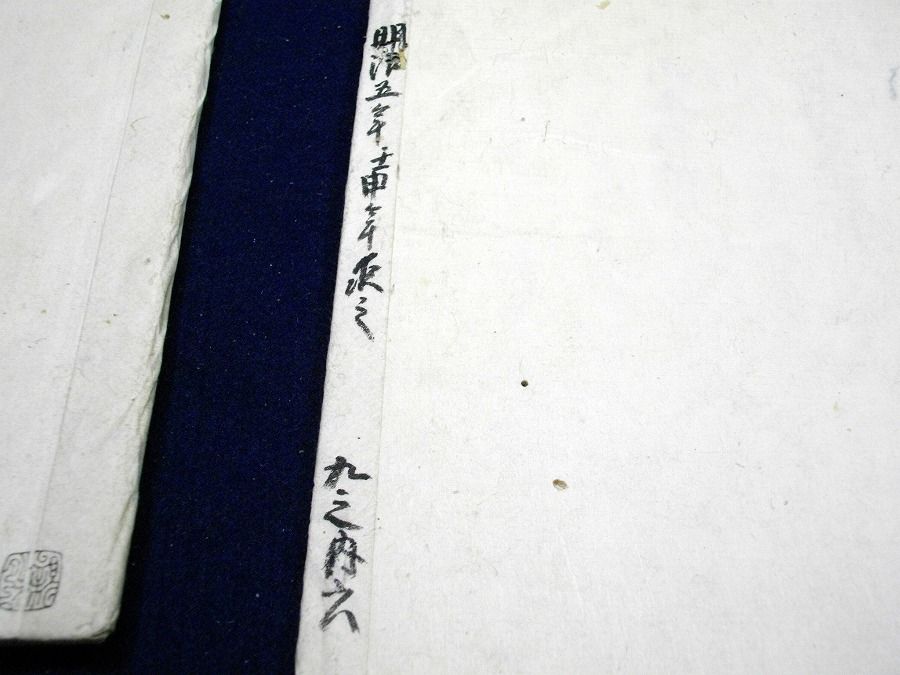 明治五年壬申年求之
九之内六